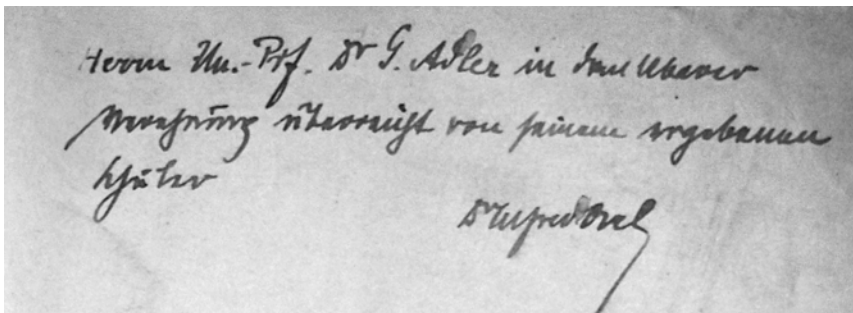 Herrn Un.-Prof. Dr G. Adler in dankbarer
Verehrung überreicht von seinem ergebenen
Schüler
Dr Alfred Orel